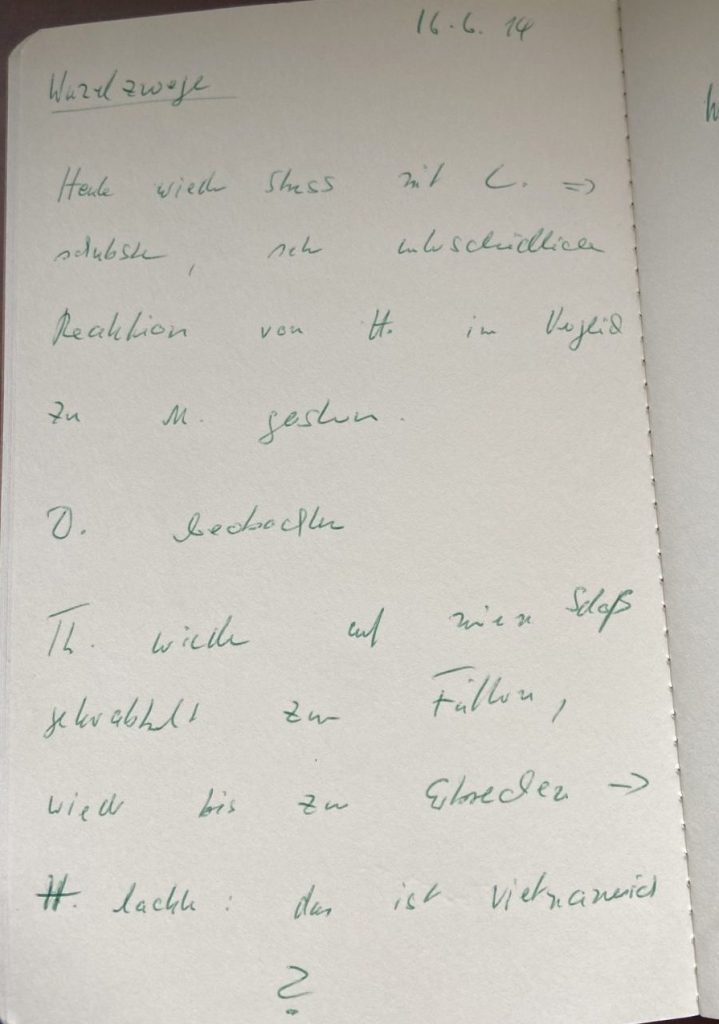 16.6.14
Wurzelzwerge
Heute wieder Stress mit C. =>
schubste, sehr unterschiedliche
Reaktion von H. im Vergleich
zu M. gestern.
D. beobachten
Th. wieder auf meinen Schoß
gekrabbelt zum Füttern,
wieder bis zum Erbrechen →
H. lachte: das ist vietnamesisch
?